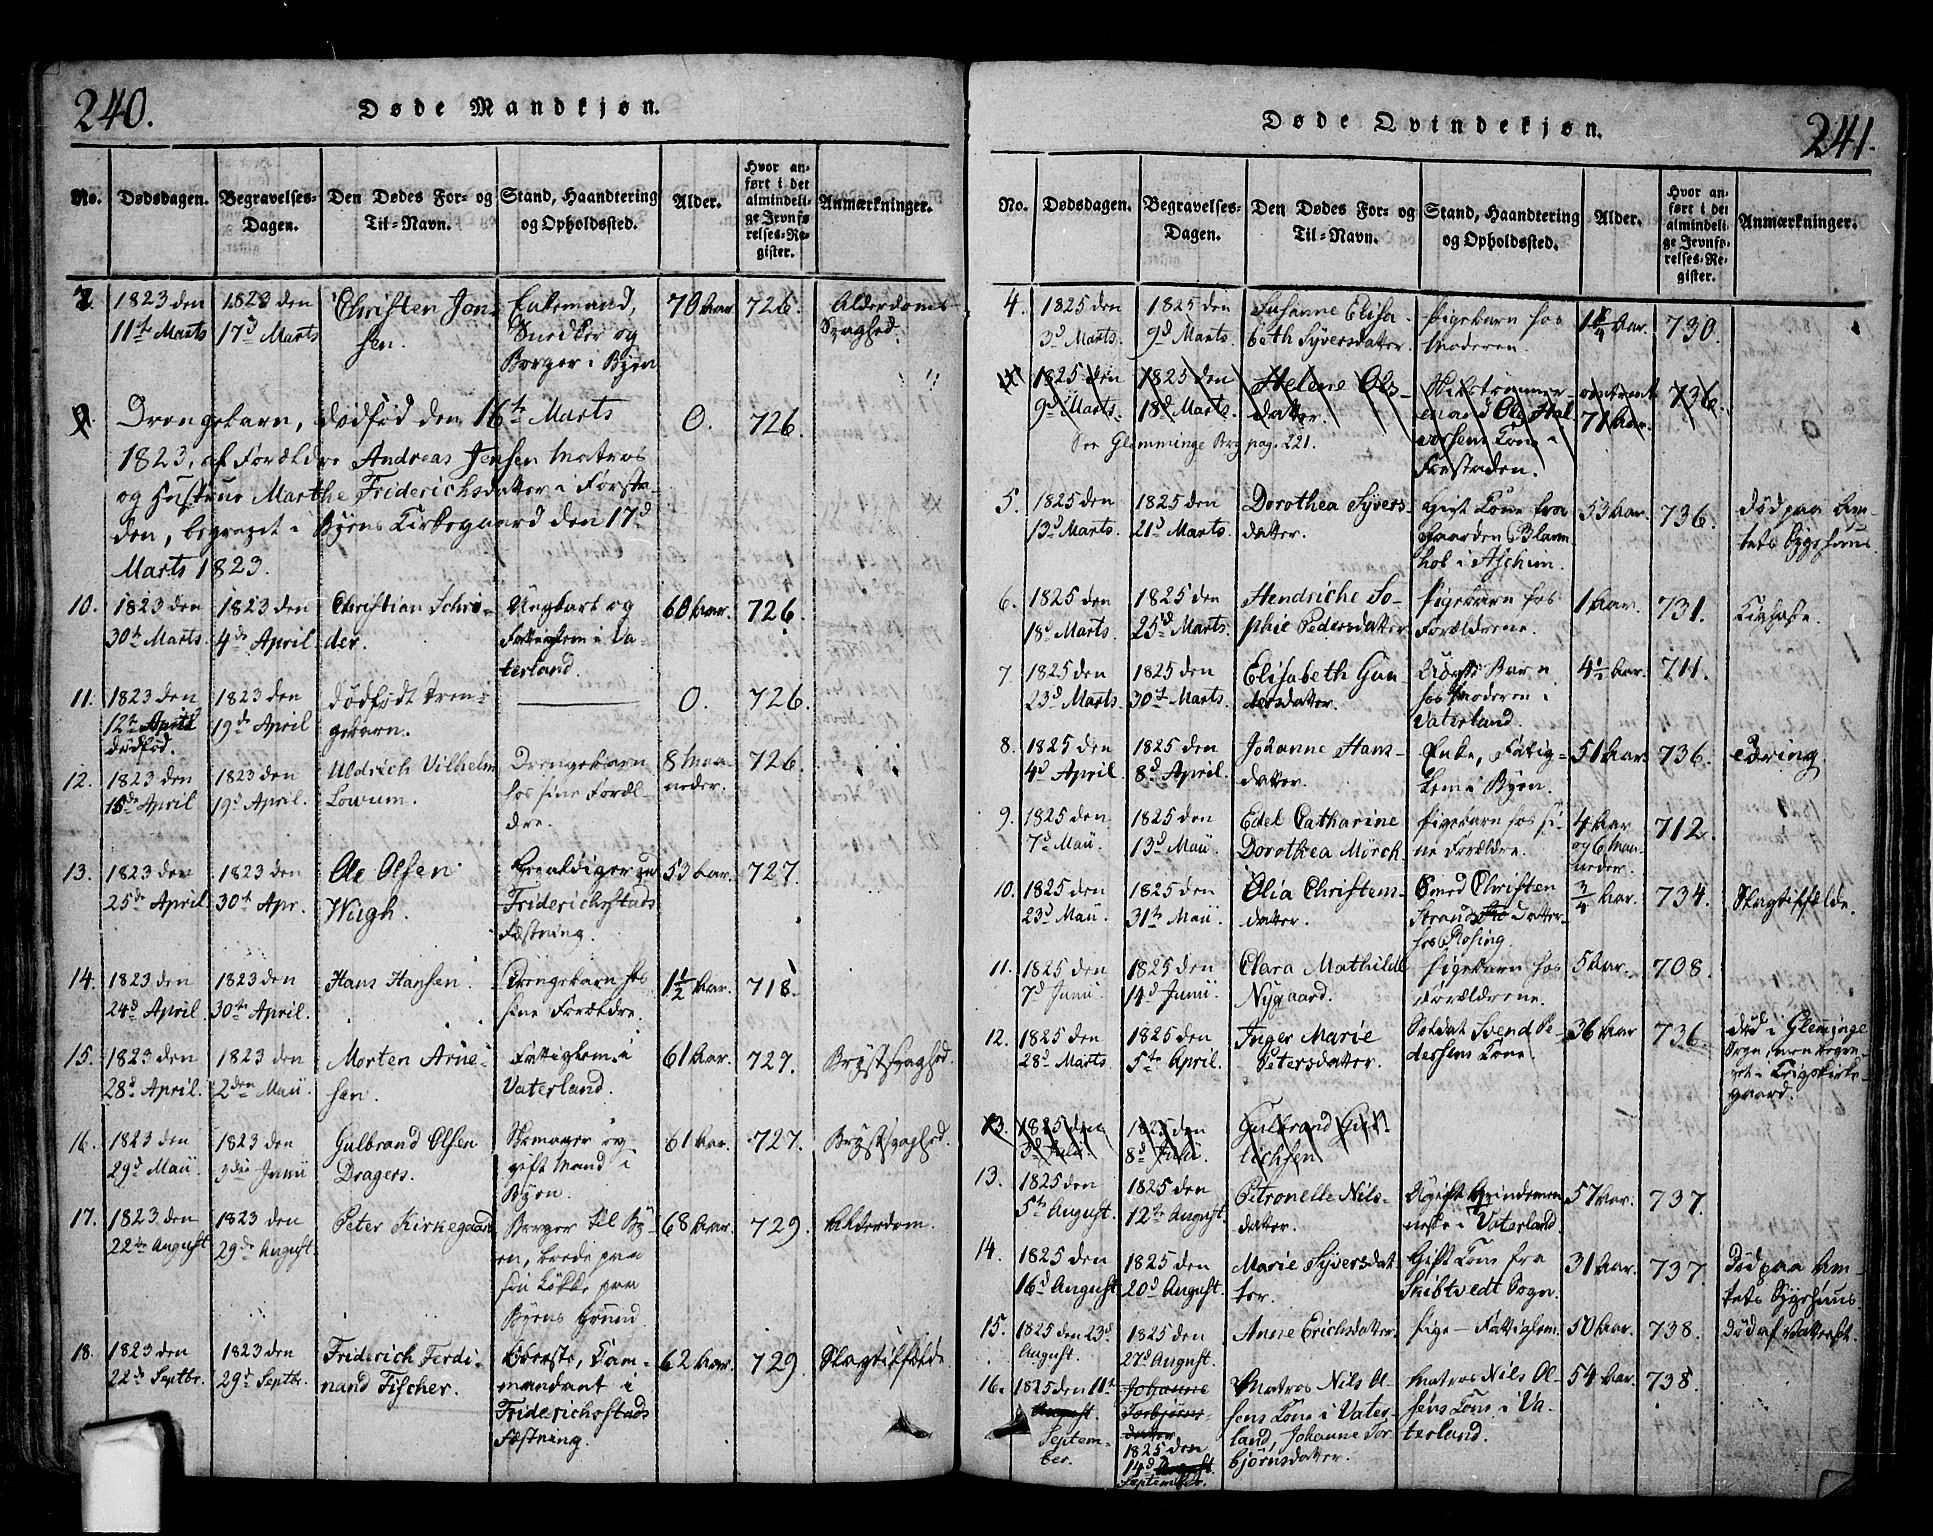 240.
Døde Mandkjøn.
No.
Dødsdagen.
Begravelses-
Dagen.
Den Dødes For- og
Til-Navn.
Stand, Haandtering
og Opholdssted.
Alder.
Hvor an-
ført i det
almindeli-
ge Jevnfø-
relses-Re-
gister.
Anmærkninger.
1823 den
11te Marts
1823 den
17d Marts
Christen Jon-
sen.
Enkemand,
Snedker og
Borger i Byen
70 Aar.
726.
Alderdoms-
Svaghed.
Drengebarn, dödföd den 16te Marts
0.
726.
1823, af Forældre Andreas Jensen Matros
og Hustrue Marthe Friderichsdatter i Forsta-
den, begravet i Byens Kirkegaard den 17d
Marts 1823.
10.
1823 den
30te Marts
1823 den
4de April
Christian Schrö-
der.
Ungkarl og
Fattiglem i Va-
terland.
60 Aar.
726.
11.
1823 den
12te April
dödföd.
1823 den
19de April
dödfödt Dren-
gebarn.
0.
726.
12.
1823 den
15de April
1823 den
19d April.
Uldrich Vilhelm
Lowum.
Drengebarn
hos sine Foræl-
dre.
8 Maa-
neder.
726.
13.
1823 den
25de April
1823 den
30te Apr.
Ole Olsen
Wugh.
Friderichstads
Fæstning.
53 Aar.
727.
14.
1823 den
24d April
1823 den
30te April.
Hans Hansen
Drengebarn hos
sine Forældre.
1½ Aar.
718.
15.
1823 den
28d April.
1823 den
2den Maii
Morten Arne-
sen.
Fattiglem i
Vaterland.
61 Aar.
727.
Brystsvaghed.
16.
1823 den
29d Maii
1823 den
3die Junii
Gulbrand Olsen
Dragers.
Skomager og
gift Mand i
Byen.
61 Aar.
727.
Brystsvaghed.
17.
1823 den
22de August
1823 den
29de August
Peter Kirkegaard
Borger til By-
en, boede paa
sin Løkke paa
Byens Grund.
68 Aar.
729.
Alderdom.
18.
1823 den
22de Septbr.
1823 den
29d Septbr.
Friderich Ferdi-
nand Fischer.
Oberste, Com-
mandant i
Friderichstads
Fæstning.
62 Aar.
729.
Slagtilfælde
241.
Døde Qvindekjøn.
No.
Dødsdagen.
Begravelses-
Dagen.
Den Dødes For- og
Til-Navn.
Stand, Haandtering
og Opholdssted.
Alder.
Hvor an-
ført i det
almindeli-
ge Jevnfø-
relses-Re-
gister.
Anmærkninger.
4.
1825 den
3d Marts.
1825 den
9d Marts.
Susanne Elisa-
beth Syversdatter.
Pigebarn hos
Moderen.
730.
1825 den
9d Marts.
1825 den
18d Marts.
Helene Ols-
datter.
Ole Hal-
vorsens Kone i
Forstaden.
omtrent
71 Aar.
736.
See Glemminge Bog pag. 221.
5.
1825 den
13d Marts.
1825 den
21d Marts.
Dorothea Syvers-
datter.
Gift Kone fra
Gaarden Blam-
hol i Aschim.
53 Aar.
736.
Död paa Am-
tets Sygehuus.
6.
1825 den
18d Marts.
1825 den
25de Marts.
Hendriche So-
phie Pedersdatter
Pigebarn hos
Forældrene.
1 Aar.
731.
Kighoste.
7
1825 den
23d Marts.
1825 den
30te Marts.
Elisabeth Gun-
dersdatter.
Uægte Barn
hos Moderen i
Vaterland.
4½ Aar.
711.
8.
1825 den
4d April.
1825 den
8d April.
Johanne Hans-
datter.
Enke, Fattig-
lem i Byen.
51 Aar.
736.
Tæring.
9.
1825 den
7d Maii.
1825 den
13d Maii.
Edel Catharine
Dorothea Mörch
Pigebarn hos si-
ne Forældre.
4 Aar
og 6 Maa-
neder.
712.
10.
1825 den
23d Maii.
1825 den
31te Maii.
Olia Christens-
datter.
Smed Christen
Strands Datter
hos Rosing.
¾ Aar.
734.
Slagtilfælde.
11.
1825 den
7d Junii.
1825 den
14d Junii.
Clara Mathilde
Nygaard.
Pigebarn hos
Forældrene.
5 Aar.
708.
12.
1825 den
28d Marts.
1825 den
5te April.
Inger Marie
Petersdatter.
Soldat Svend Pe-
dersens Kone.
36 Aar
736.
död i Glemminge
Sogn, men begra-
vet i Krigskirke-
gaard.
13.
1825 den
3d Julii.
1825 den
8d Julii.
Gulbrand Gul-
lichsen
13.
1825 den
5te August.
1825 den
12te August.
Petronelle Nils-
datter.
Ugift Qvindemen-
neske i Vaterland.
57 Aar.
737.
14.
1825 den
16d August
1825 den
20d August.
Marie Syversdat-
ter.
Gift Kone fra
Skibtvedt Sogn.
31 Aar.
737.
Död paa Am-
tets Sygehuus.
15.
1825 den 23d
August.
1825 den
27d August.
Anne Erichsdatter.
Pige - Fattiglem.
50 Aar.
738.
Död af Vattersot.
16.
1825 den 11te
August.
Septem-
ber.
Johanne
Torbjörns-
datter
1825 den
14d August.
September.
Matros Nils Ol-
sens Kone i Vater-
land, Johanne Tor-
björnsdatter.
Matros Nils Ol-
sens Kone i Va-
terland.
54 Aar.
738.